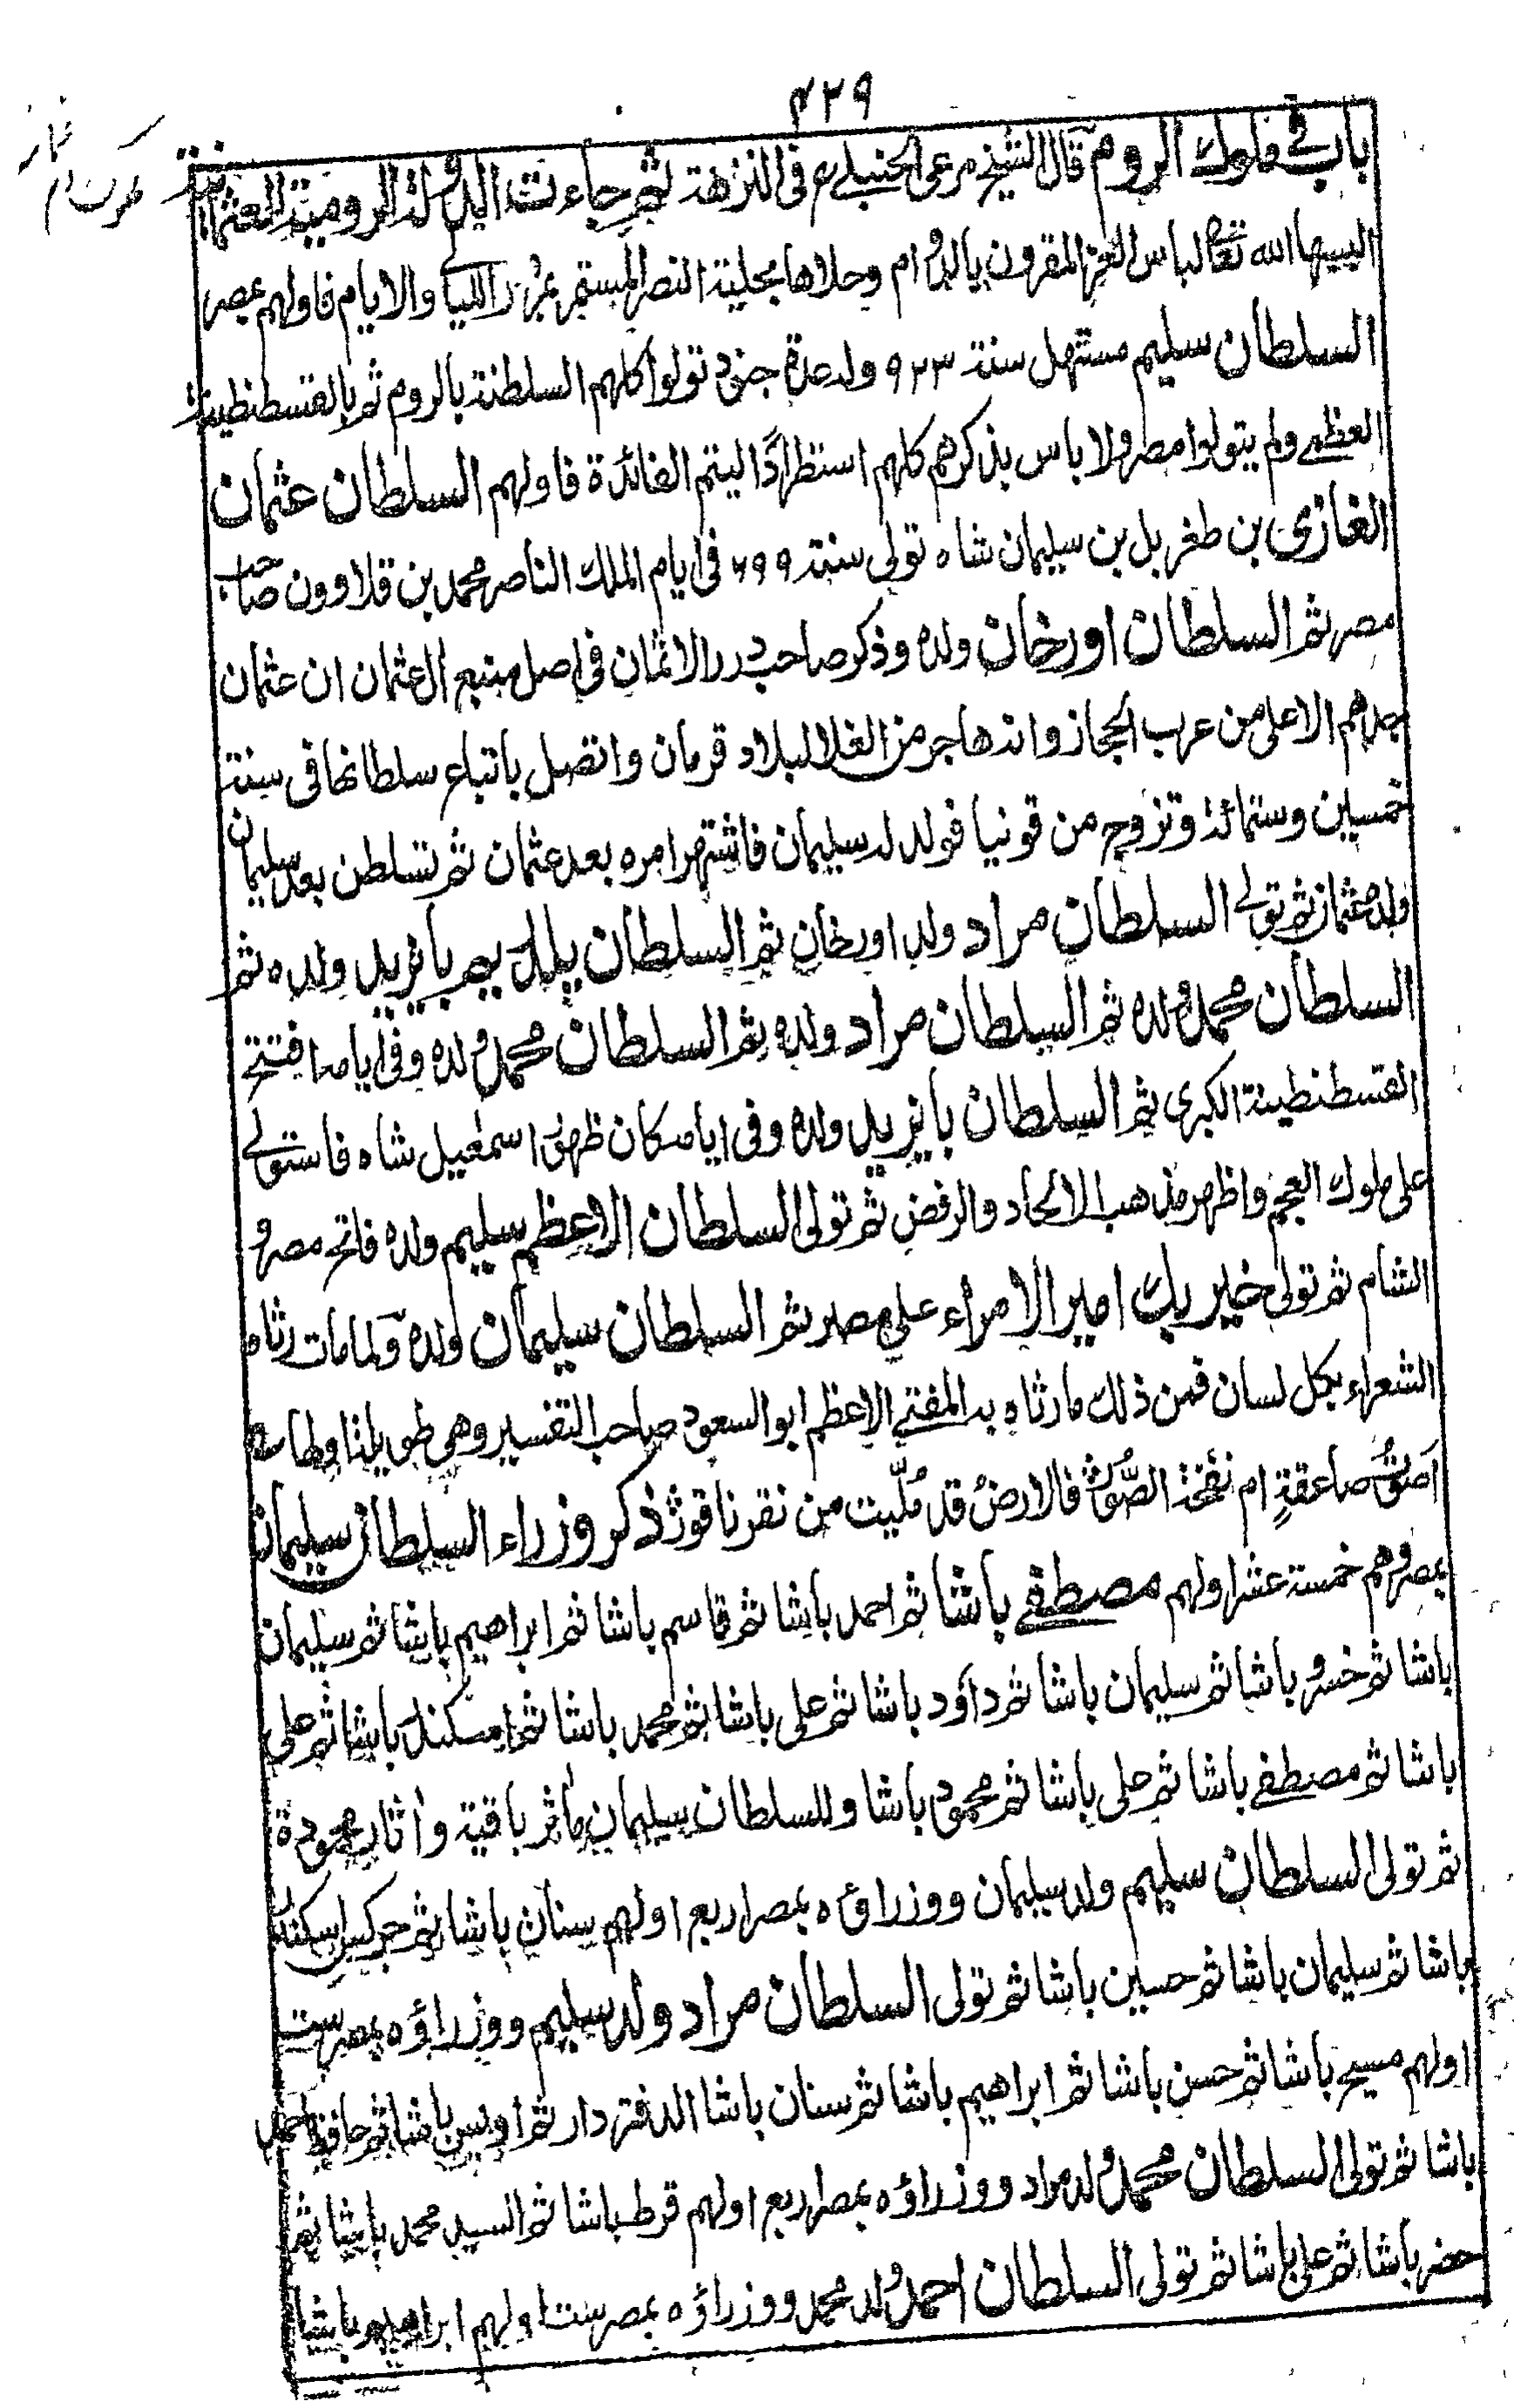 ۴۲۹
باب في ملوك الروم قال الشيخ مرعي الحنبلي في النزهة ثم جاءت الدولة الرومية العثمانية
البسها الله تعالى لباس العز المقرون بالدوام وحلاها بحلية النصر المستمر الليالي والايام فاولهم بمصر
السلطان سليم مستهل سنة ۹۲۳ وله عدة جدود تولوا كلهم السلطنة بالروم ثم بالقسطنطينية
العظمى ولم يتولوا مصر ولا باس بذكرهم كلهم استطرادًا ليتم الفائدة فاولهم السلطان عثمان
الغازى بن طغربل بن سليمان شاه تولى سنة ۶۹۹ فى ايام الملك الناصر محمد بن قلاوون صاحب
مصر ثم السلطان اورخان ولده وذكر صاحب درر الاثمان فى اصل منبع ال عثمان ان عثمان
جدهم الاعلى من عرب الحجاز وانه هاجر من الغلا لبلاد قرمان واتصل باتباع سلطانها فى سنة
خمسين وستمائة وتزوج من قونيا فولد له سليمان فاشتهر امره بعد عثمان ثم تسلطن بعد سليمان
ولده عثمان ثم تولى السلطان مراد ولد اورخان ثم السلطان يلدريم بايزيد ولده ثم
السلطان محمد ولده ثم السلطان مراد ولده ثم السلطان محمد ولده وفى ايامه افتتح
القسطنطينة الكبرى ثم السلطان بايزيد ولده وفى ايامه كان ظهور اسمعيل شاه فاستولى
على ملوك العجم واظهر مذهب الالحاد والرفض ثم تولى السلطان الاعظم سليم ولده فاتح مصر و
الشام ثم تولى خير بك امير الامراء على مصر ثم السلطان سليمان ولده ولما مات رثاه
الشعراء بكل لسان فمن ذلك ما رثاه به المفتي الاعظم ابو السعود صاحب التفسير وهى طويلة
اَصَوْتُ صاعقةٍ ام نفخة الصُّور فالارضُ قد مُلّيت من نقر ناقور ذكر وزراء السلطان سليمان
بمصر وهم خمسة عشر اولهم مصطفى باشا ثم احمد باشا ثم قاسم باشا ثم ابراهيم باشا ثم سليمان
باشا ثم خسرو باشا ثم سليمان باشا ثم داؤد باشا ثم على باشا ثم محمد باشا ثم اسكندر باشا ثم على
باشا ثم مصطفى باشا ثم على باشا ثم محمود باشا وللسلطان سليمان ماثر باقية واثار محمودة
ثم تولى السلطان سليم ولد سليمان ووزراؤه بمصر اربع اولهم سنان باشا ثم جركس اسكندر
باشا ثم سليمان باشا ثم حسين باشا ثم تولى السلطان مراد ولد سليم ووزراؤه بمصر ست
اولهم مسيح باشا ثم حسن باشا ثم ابراهيم باشا ثم سنان باشا الدفتردار ثم اويس باشا ثم حافظ احمد
باشا ثم تولى السلطان محمد ولد مراد ووزراؤه بمصر اربع اولهم قرط باشا ثم السيد محمد باشا ثم
خضر باشا ثم على باشا ثم تولى السلطان احمد ولد محمد ووزراؤه بمصر ستة اولهم ابراهيم باشا